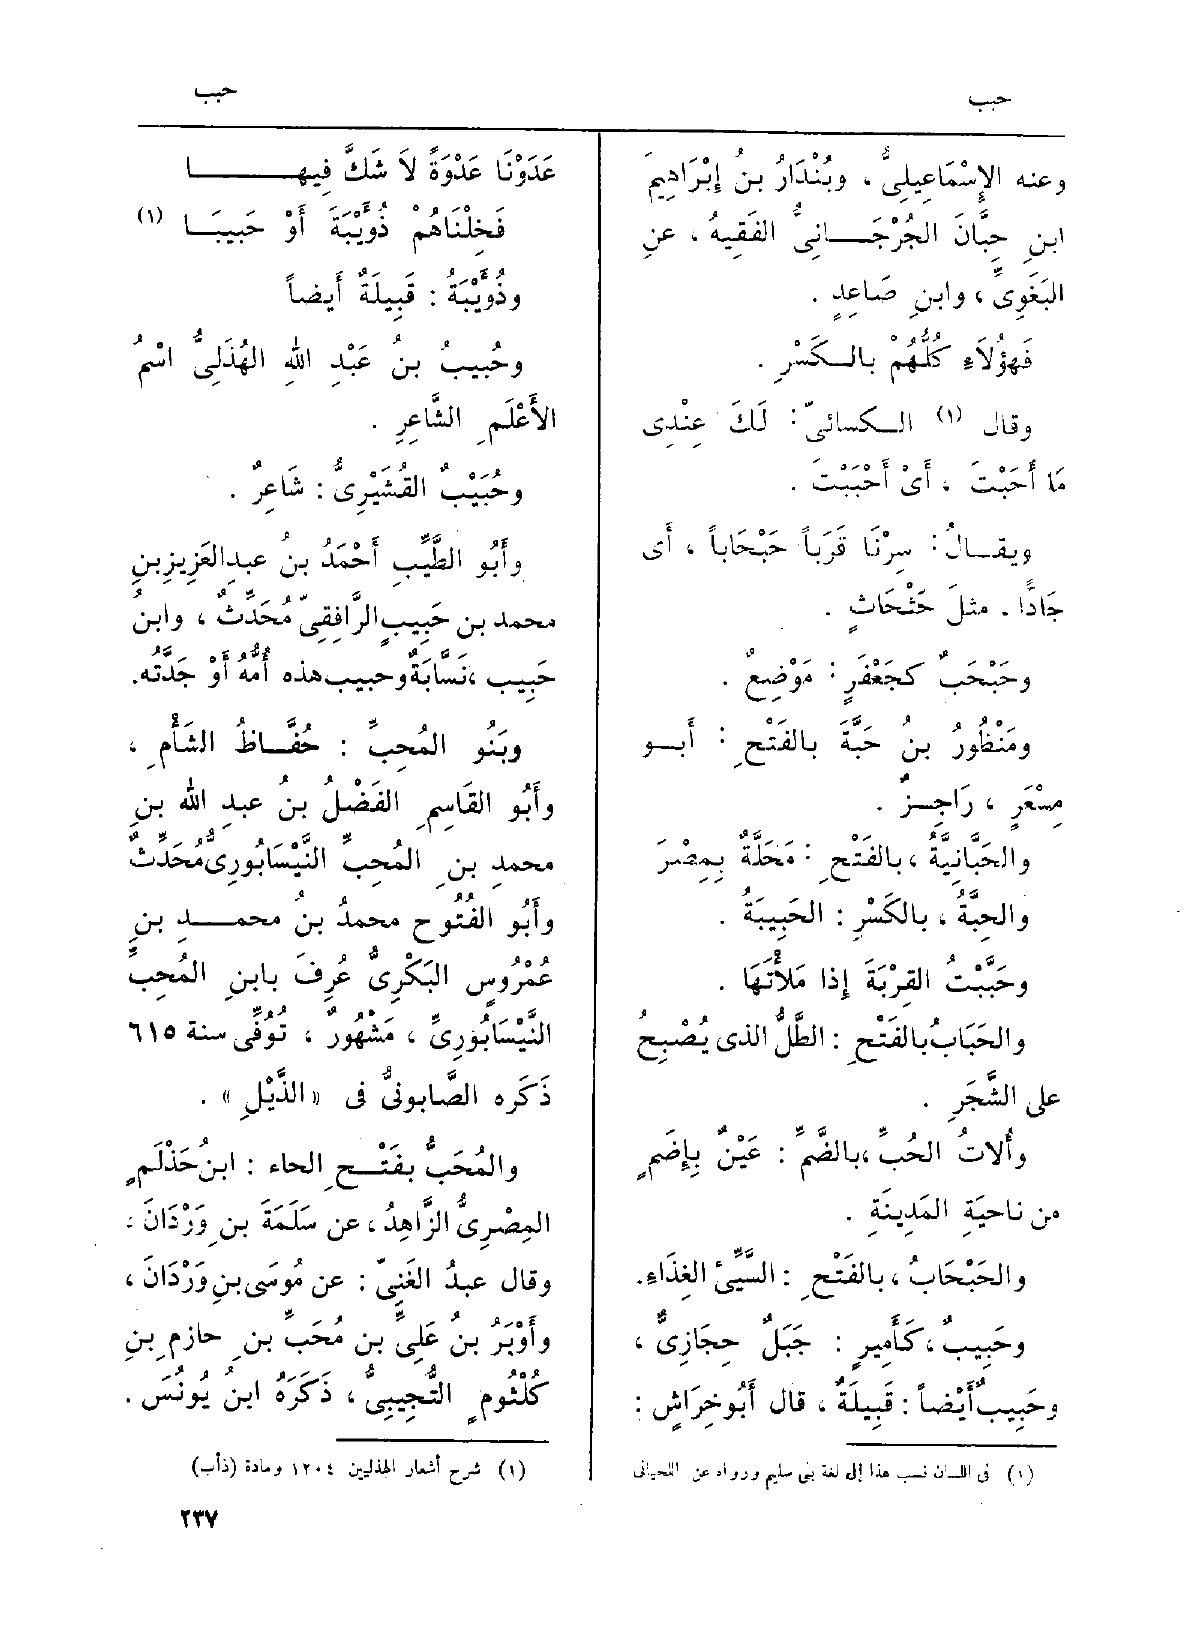 حبب
حبب
وعنه الإِسْمَاعِيلِىُّ ، وبُنْدَارُ بنُ إِبْرَاهِيمَ
ابنِ حِبَّانَ الجُرْجَانِىُّ الفَقِيهُ ، عنِ
البَغَوِىِّ ، وابنِ صَاعِدٍ .
فَهؤُلَاءِ كُلُّهُم بالكَسْرِ .
وقال (١) الكسائىّ : لَكَ عِنْدِى
مَا أَحَبْتَ ، أَىْ أَحْبَبْتَ .
ويقالُ : سِرْنَا قَرَباً حَبْحَاباً ، أَى
جَادًّا . مثلَ حَثْحَاثٍ .
وحَبْحَبٌ كجَعْفَرٍ : مَوْضِعٌ .
ومَنْظُورُ بنُ حَبَّةَ بالفَتْحِ : أَبو
مِسْعَرٍ ، رَاجِزٌ .
والحَبَّانِيَّةُ ، بالفَتْحِ : مَحَلَّةٌ بِمِصْرَ
والحِبَّةُ ، بالكَسْرِ : الحَبِيبَةُ .
وحَبَّبْتُ القِرْبَةَ إِذا مَلأْتَهَا .
والحَبَابُ بالفَتْحِ : الطَّلُّ الذى يُصْبِحُ
على الشَّجَرِ .
وأُلَاتُ الحُبِّ ، بالضَّمِّ : عَيْنٌ بإِضَمٍ
من ناحِيَةِ المَدِينَةِ .
والحَبْحَابُ ، بالفَتْحِ : السَّيِّئُ الغِذَاءِ .
وحَبِيبٌ ، كأَمِيرٍ : جَبَلٌ حِجَازِىٌّ ،
وحَبِيبٌ أَيْضاً : قَبِيلَةٌ ، قال أَبُو خِرَاشٍ :
(١) فى اللسان نسب هذا إلى لغة بنى سليم ورواه عن اللحيانى
عَدَوْنَا عَدْوَةً لَا شَكَّ فِيهَا
فَخِلْنَاهُمْ ذُؤَيْبَةَ أَوْ حَبِيبَا (١)
وذُؤَيْبَةُ : قَبِيلَةٌ أَيضاً
وحُبِيبُ بنُ عَبْدِ اللهِ الهُذَلِىُّ اسْمُ
الأَعْلَمِ الشَّاعِرِ .
وحُبَيْبٌ القُشَيْرِىُّ : شَاعِرٌ .
وأَبُو الطَّيِّبِ أَحْمَدُ بنُ عبدِ العَزِيزِ بنِ
محمد بن حَبِيبٍ الرَّافِقِىّ مُحَدِّثٌ ، وابنُ
حَبِيب ، نَسَّابَةٌ وحبيب هذه أُمُّهُ أَوْ جَدَّتُه .
وبَنُو المُحِبِّ : حُفَّاظُ الشَّأْمِ ،
وأَبُو القَاسِمِ الفَضْلُ بنُ عبدِ اللهِ بنِ
محمدِ بنِ المُحِبِّ النَّيْسَابُورِىُّ مُحَدِّثٌ
وأَبُو الفُتُوحِ محمدُ بنُ محمدِ بنِ
عُمْرُوسٍ البَكْرِىُّ عُرِفَ بابنِ المُحِبِّ
النَّيْسَابُورِىِّ ، مَشْهُورٌ ، تُوُفِّى سنة ٦١٥
ذَكَره الصَّابونىُّ فى «الذَّيْلِ» .
والمُحَبُّ بفَتْحِ الحاء : ابنُ حَذْلَمٍ
المِصْرِىُّ الزَّاهِدُ ، عن سَلَمَةَ بنِ وَرْدَانَ ،
وقال عبدُ الغَنِىّ : عن مُوسَى بنِ وَرْدَانَ ،
وأَوْبَرُ بنُ عَلِىِّ بن مُحَبِّ بنِ حازِمِ بنِ
كُلْثُومٍ التُّجِيبِىُّ ، ذَكَرَهُ ابنُ يُونُسَ .
(١) شرح أشعار الهذليين ١٢٠٤ ومادة (ذأب)
٢٣٧